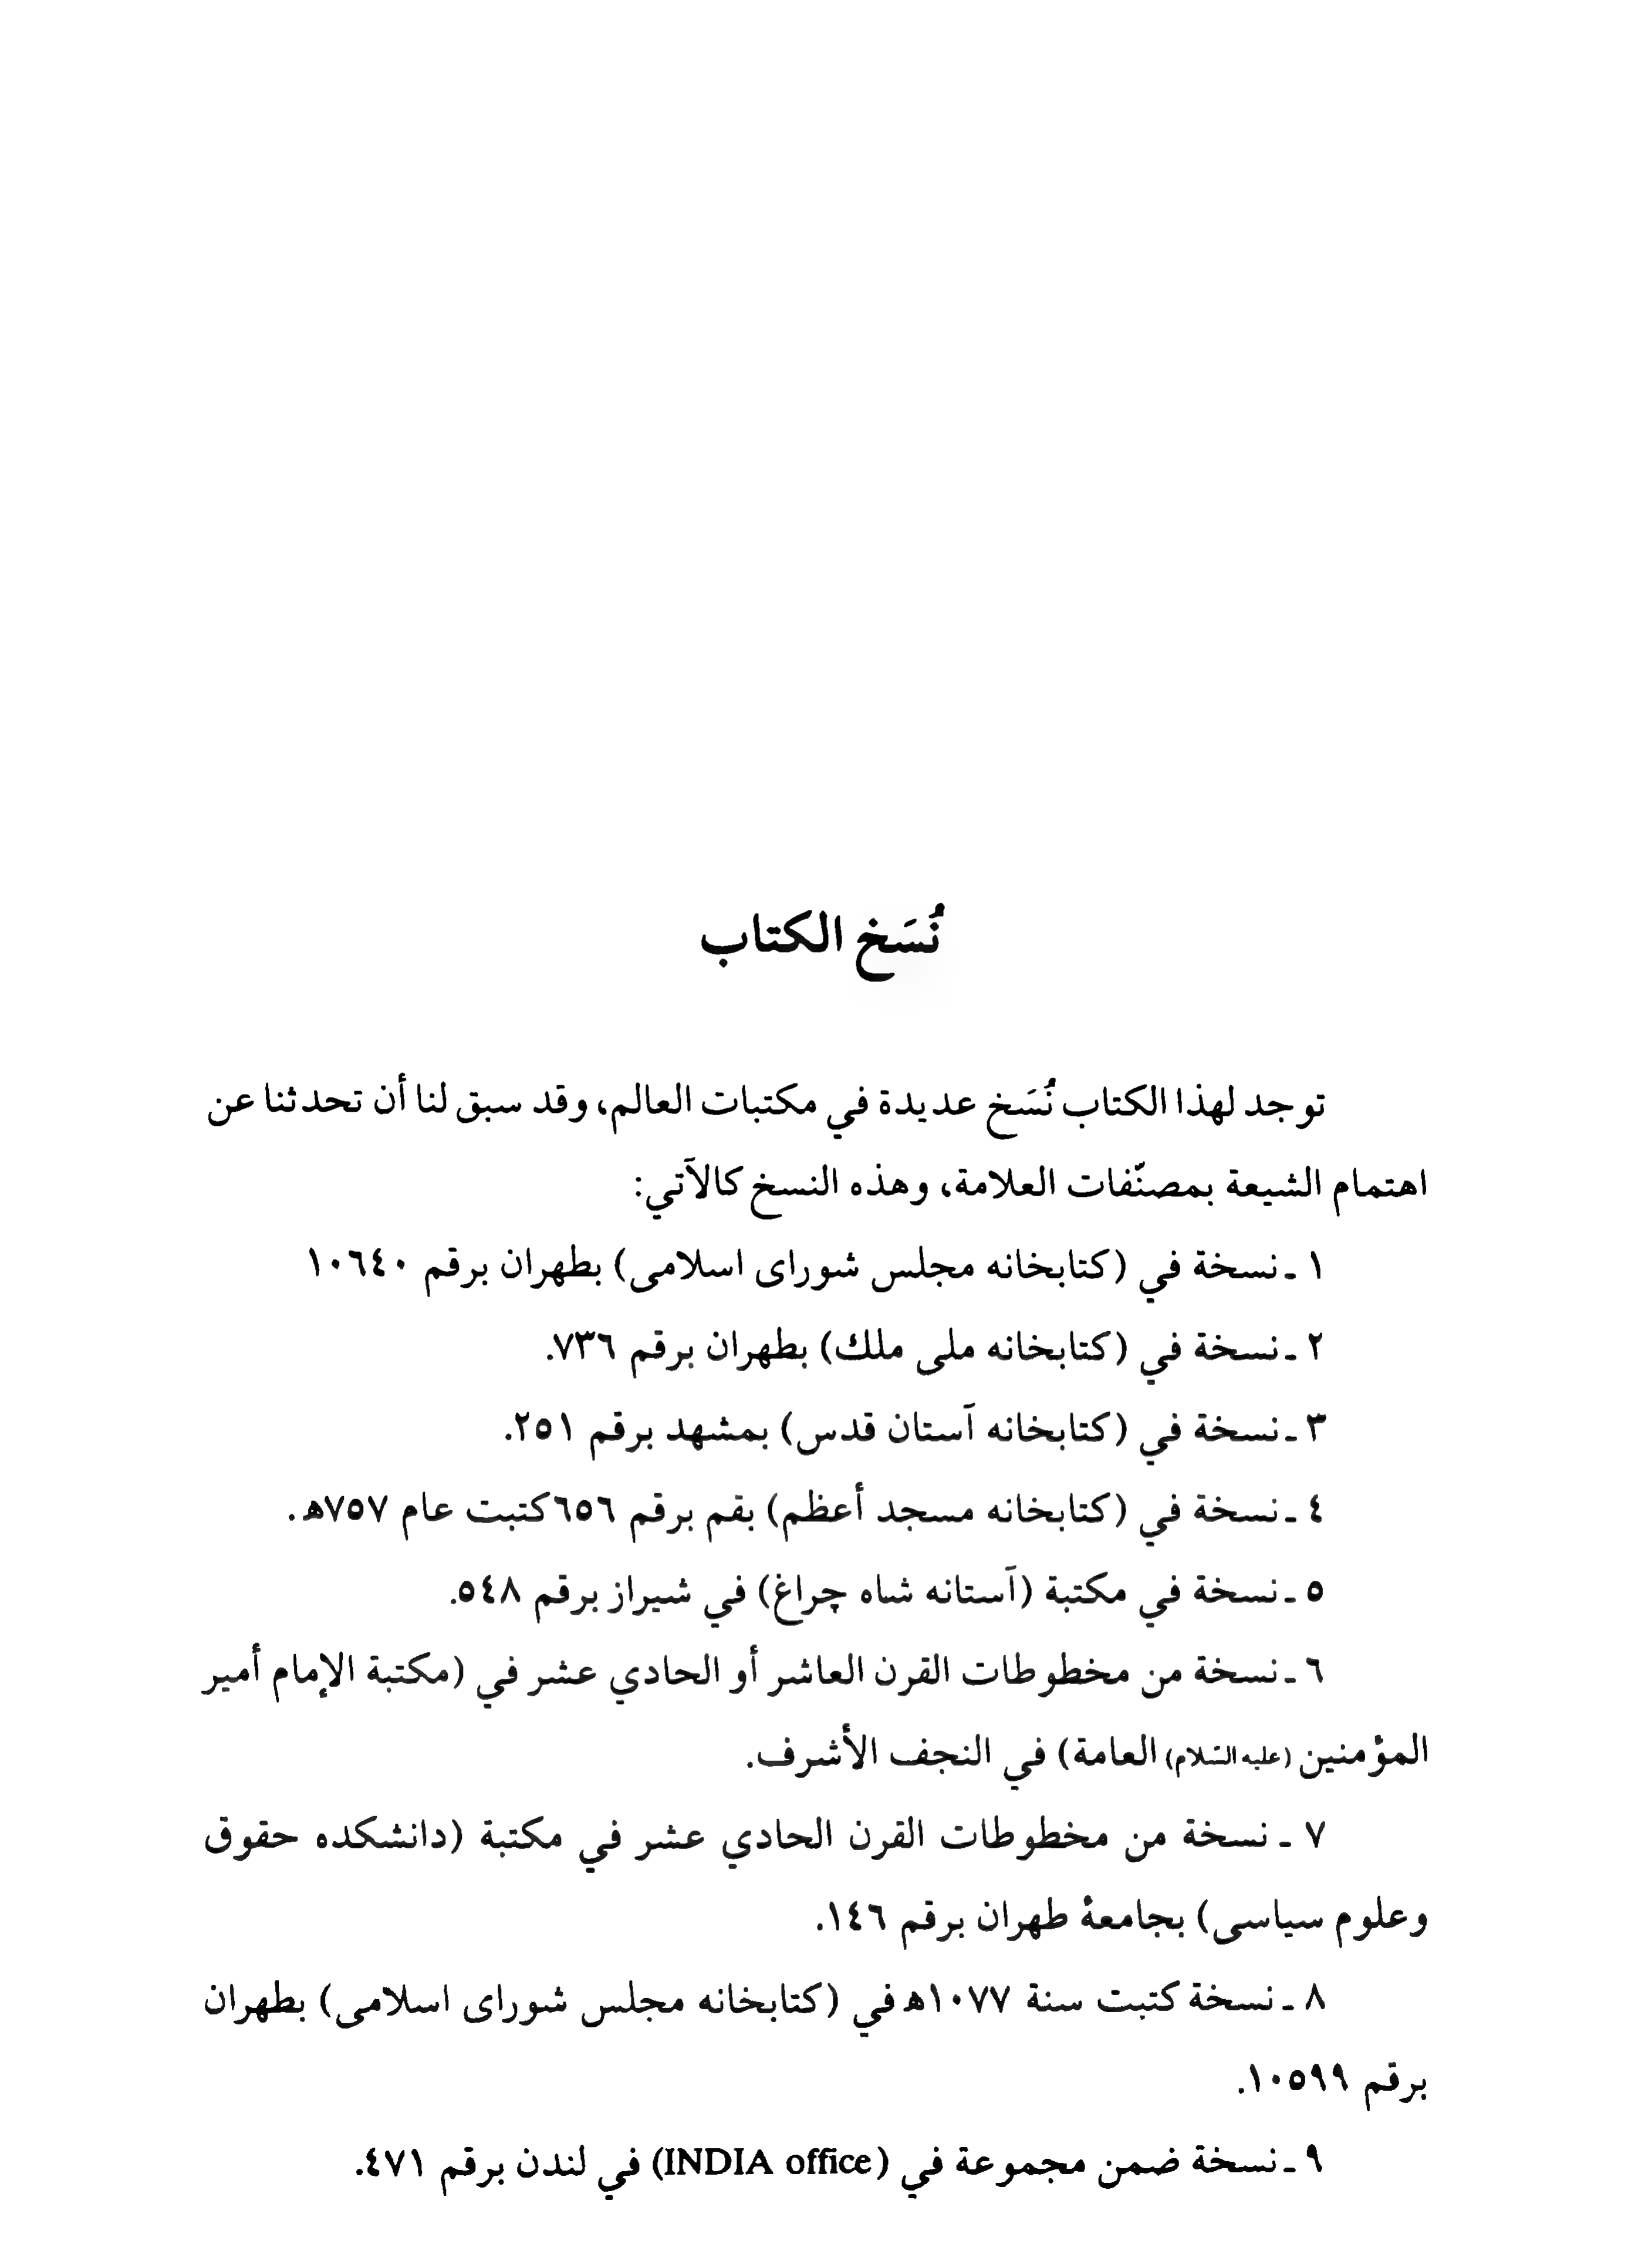 نُسَخ الكتاب
توجد لهذا الكتاب نُسَخ عديدة في مكتبات العالم، وقد سبق لنا أن تحدثنا عن
اهتمام الشيعة بمصنّفات العلامة، وهذه النسخ كالآتي:
١ ـ نسخة في (كتابخانه مجلس شوراى اسلامى) بطهران برقم ١٠٦٤٠
٢ ـ نسخة في (كتابخانه ملى ملك) بطهران برقم ٧٣٦.
٣ ـ نسخة في (كتابخانه آستان قدس) بمشهد برقم ٢٥١.
٤ ـ نسخة في (كتابخانه مسجد أعظم) بقم برقم ٦٥٦ كتبت عام ٧٥٧ه‍.
٥ ـ نسخة في مكتبة (آستانه شاه چراغ) في شيراز برقم ٥٤٨.
٦ ـ نسخة من مخطوطات القرن العاشر أو الحادي عشر في (مكتبة الإمام أمير
المؤمنين (عليه السّلام) العامة) في النجف الأشرف.
٧ ـ نسخة من مخطوطات القرن الحادي عشر في مكتبة (دانشكده حقوق
وعلوم سياسى) بجامعۀ طهران برقم ١٤٦.
٨ ـ نسخة كتبت سنة ١٠٧٧ه‍ في (كتابخانه مجلس شوراى اسلامى) بطهران
برقم ١٠٥٩٩.
٩ ـ نسخة ضمن مجموعة في (INDIA office) في لندن برقم ٤٧١.